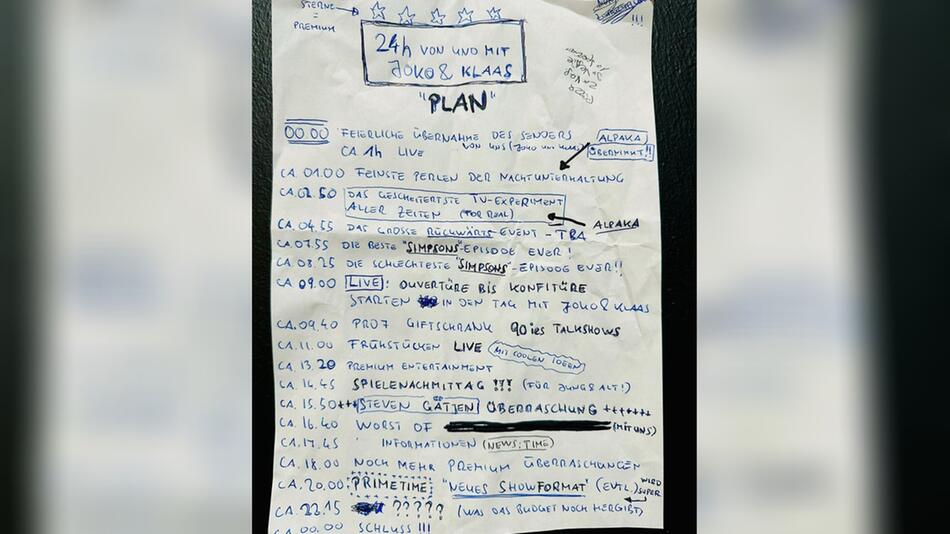 STERNE
=
PREMIUM
24h VON UND MIT
JOKO & KLAAS
"PLAN"
00.00 FEIERLICHE ÜBERNAHME DES SENDERS
CA 1h LIVE VON UNS (JOKO UND KLAAS)
ALPAKA
ÜBERNIMMT!!
CA. 01.00 FEINSTE PERLEN DER NACHTUNTERHALTUNG
CA. 02.50 DAS GESCHEITERTSTE TV-EXPERIMENT
ALLER ZEITEN (FOR REAL)
ALPAKA
CA. 04.55 DAS GROSSE RÜCKWÄRTS EVENT - TBA
CA. 07.55 DIE BESTE "SIMPSONS"-EPISODE EVER!
CA. 08.25 DIE SCHLECHTESTE "SIMPSONS"-EPISODE EVER!!
CA 09.00 LIVE: OUVERTÜRE BIS KONFITÜRE
STARTEN IN DEN TAG MIT JOKO & KLAAS
CA. 09.40 PRO7 GIFTSCHRANK 90ies TALKSHOWS
CA. 11.00 FRÜHSTÜCKEN LIVE (MIT COOLEN IDEEN)
CA. 13.20 PREMIUM ENTERTAINMENT
CA. 14.45 SPIELENACHMITTAG !!! (FÜR JUNG & ALT!)
CA. 15.50 +++ STEVEN GÄTJEN ÜBERRASCHUNG +++++++
CA. 16.40 WORST OF (MIT UNS)
CA. 17.45 INFORMATIONEN (NEWS:TIME)
CA. 18.00 NOCH MEHR PREMIUM ÜBERRASCHUNGEN
CA. 20.00 PRIMETIME "NEUES SHOWFORMAT" (EVTL.) WIRD SUPER
CA. 22.15 ????? (WAS DAS BUDGET NOCH HERGIBT)
CA. 00.00 SCHLUSS !!!